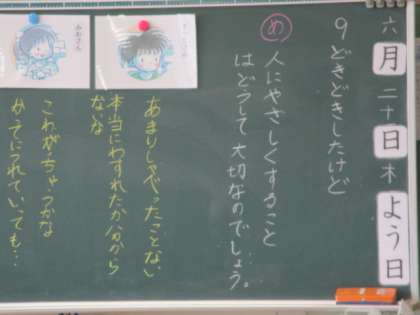 六月二十日木よう日
9 どきどきしたけど
め 人にやさしくすること
はどうして大切なのでしょう。
あまりしゃべったことない
本当にわすれたか分から
ないな
これが・ちゃうかな